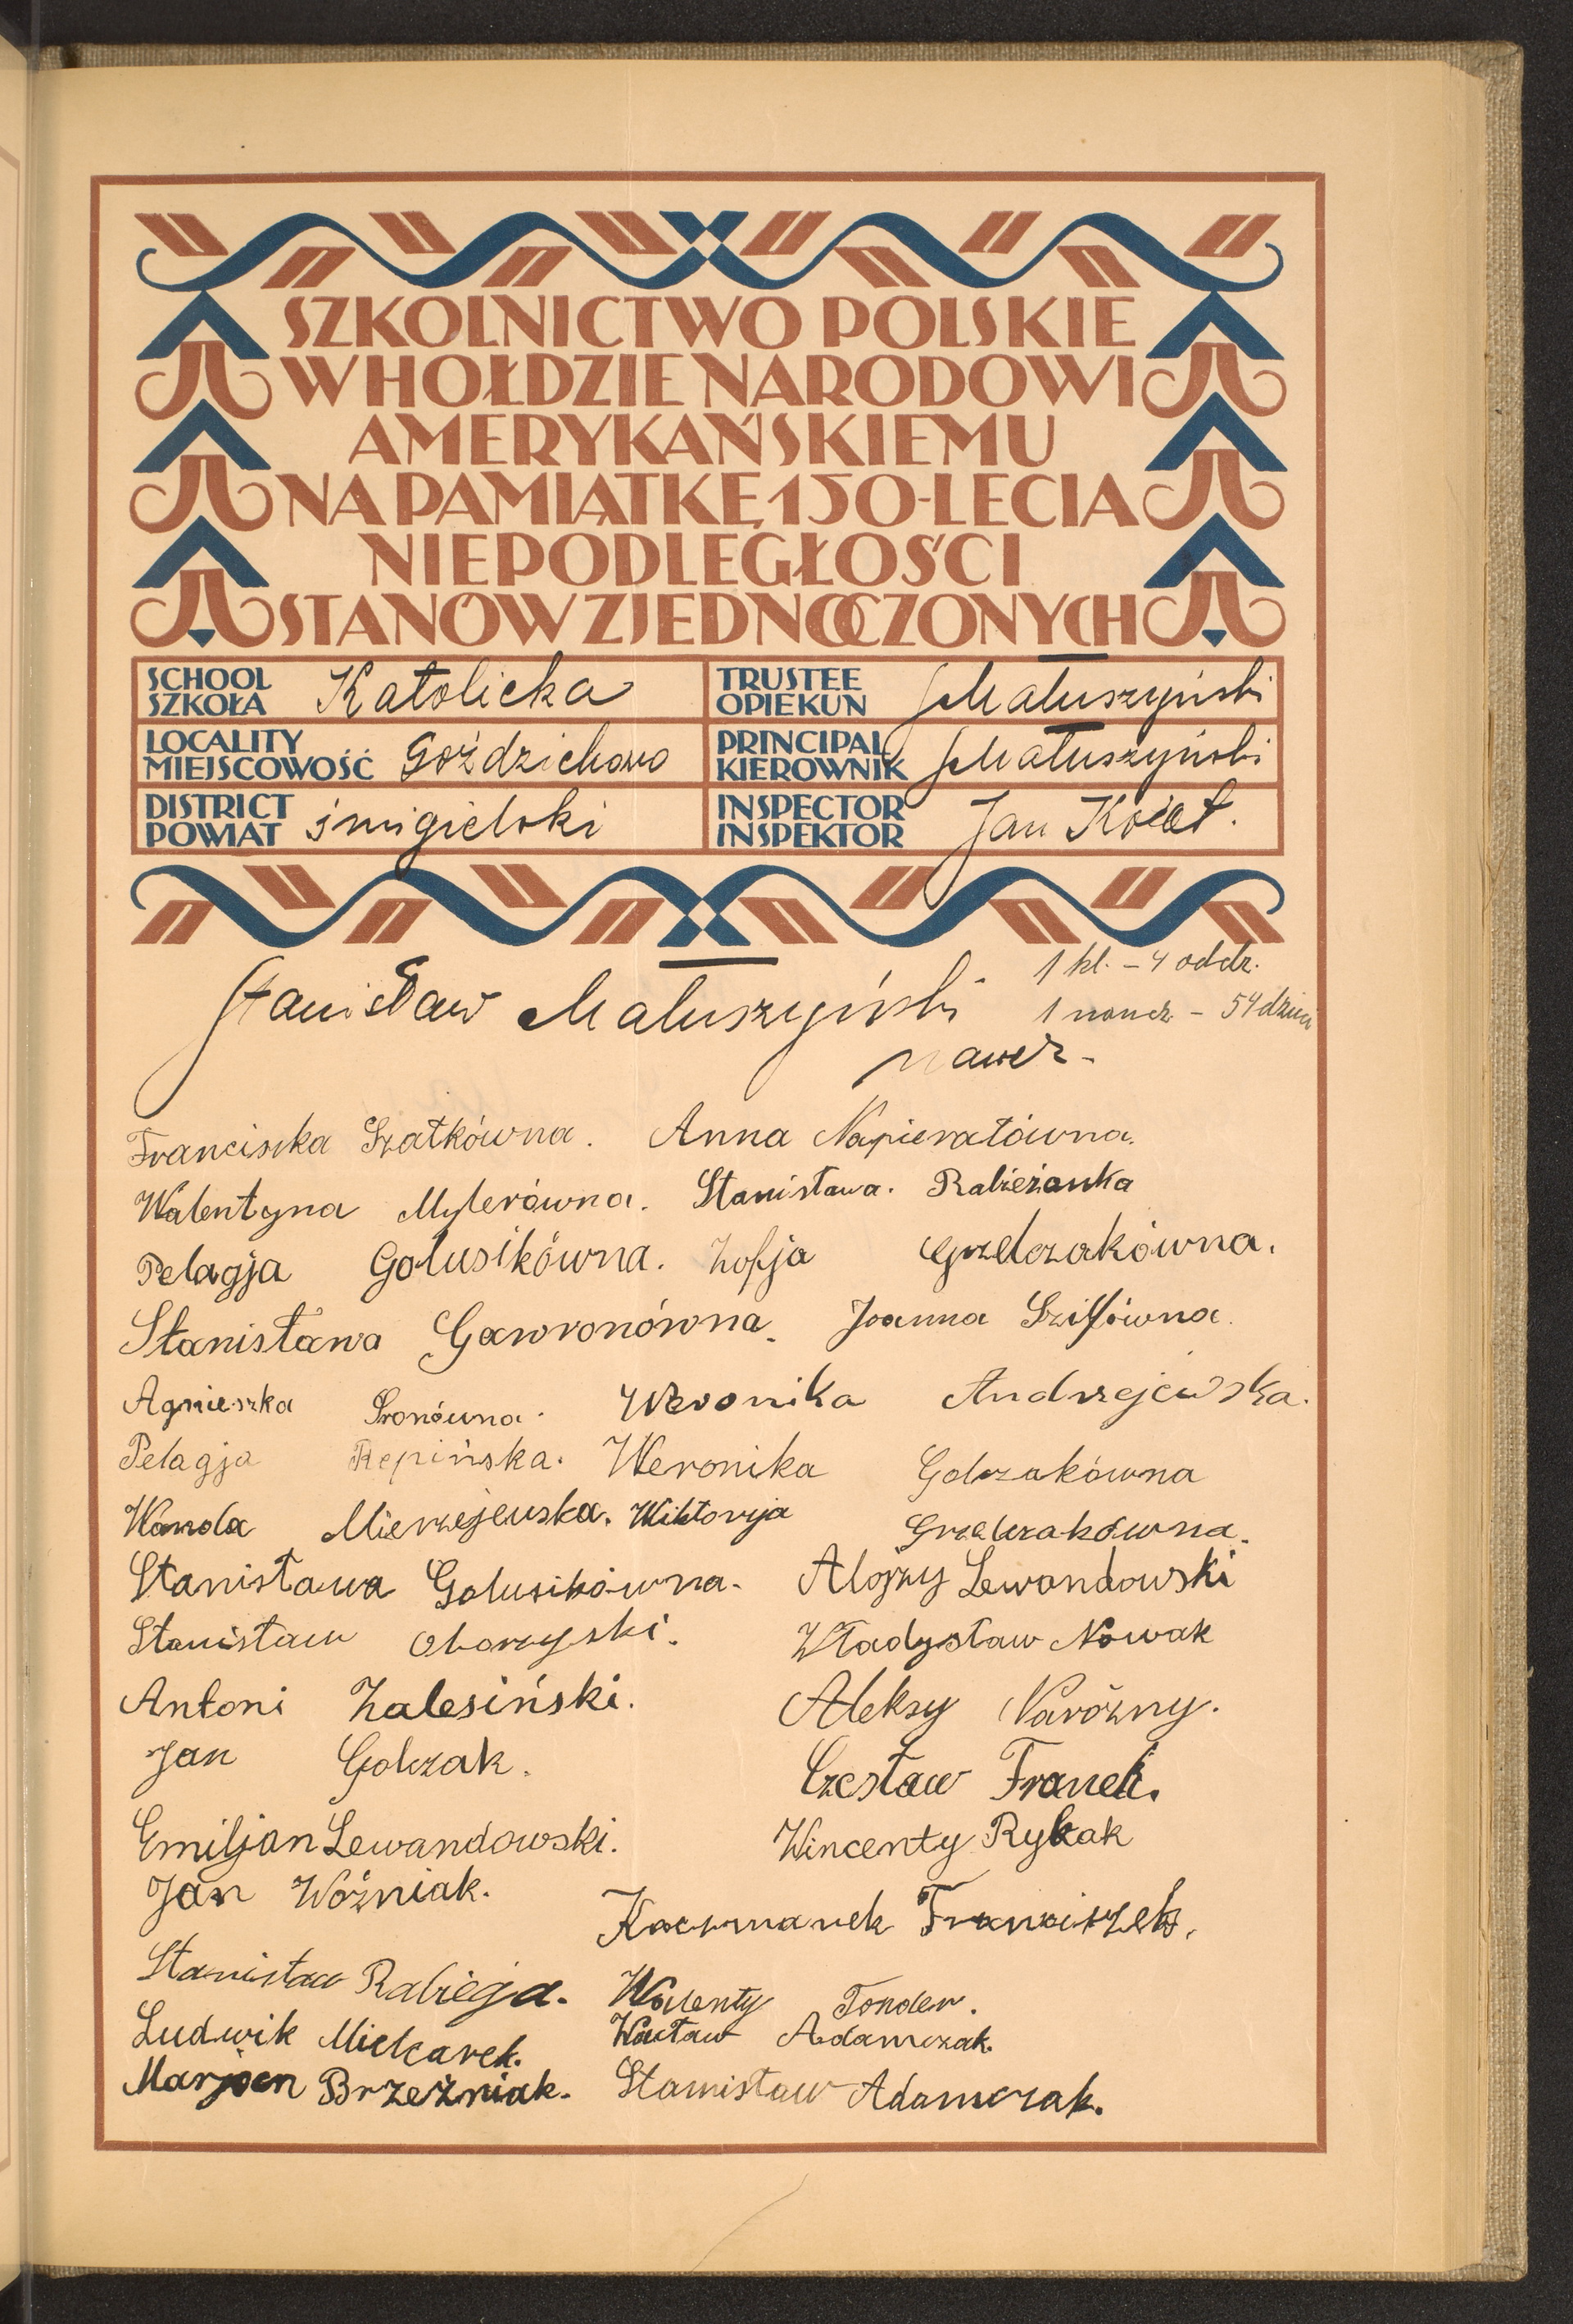 SZKOLNICTWO POLSKIE
W HOŁDZIE NARODOWI
AMERYKAŃSKIEMU
NA PAMIĄTKĘ 150-LECIA
NIEPODLEGŁOŚCI
STANÓW ZJEDNOCZONYCH
SCHOOL
SZKOŁA Katolicka
TRUSTEE
OPIEKUN Małuszyński
LOCALITY
MIEJSCOWOŚĆ Goździchowo
PRINCIPAL
KIEROWNIK Małuszyński
DISTRICT
POWIAT śmigielski
INSPECTOR
INSPEKTOR Jan Kwiat.
1 kl. - 4 oddz.
Stanisław Małuszyński
1 naucz - 54 dzieci
naucz-
Franciszka Szatkówna. Anna Napierałówna.
Walentyna Mylerówna. Stanisława. Rabieżanka
Pelagja Golusikówna. Zofja Grzelczakówna.
Stanisława Gawronówna. Joanna
Agnieszka Weronika Andrzejewska.
Pelagja Repińska. Weronika Golczakówna
Wanda Mierzejewska. Wiktorja Grzelczakówna.
Stanisława Golusikówna. Alojzy Lewandowski
Stanisław Oborzyski. Władysław Nowak
Antoni Zalesiński. Aleksy Narożny.
Jan Golczak. Czesław Franek.
Emiljan Lewandowski. Wincenty Rybak
Jan Woźniak. Kaczmarek Franciszek.
Stanisław Rabiega. Walenty Tonder.
Ludwik Mielcarek. Wacław Adamczak.
Marjan Brzeźniak. Stanisław Adamczak.